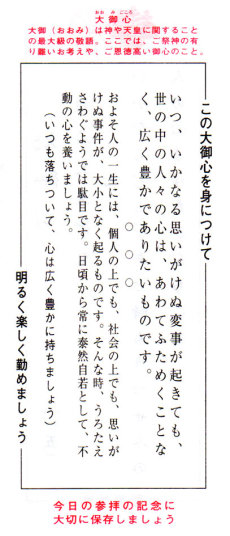 おおみごころ
大御心
大御（おおみ）は神や天皇に関すること
の最大級の敬語。ここでは、ご祭神の有
り難いお考えや、ご恩徳高い御心のこと。
この大御心を身につけて
いつ、いかなる思いがけぬ変事が起きても、
世の中の人々の心は、あわてふためくことな
く、広く豊かでありたいものです。
○ ○ ○
およそ人の一生には、個人の上でも、社会の上でも、思いが
けぬ事件が、大小となく起るものです。そんな時、うろたえ
さわぐようでは駄目です。日頃から常に泰然自若として、不
動の心を養いましょう。
（いつも落ちついて、心は広く豊かに持ちましょう）
明るく楽しく勤めましょう
今日の参拝の記念に
大切に保存しましょう